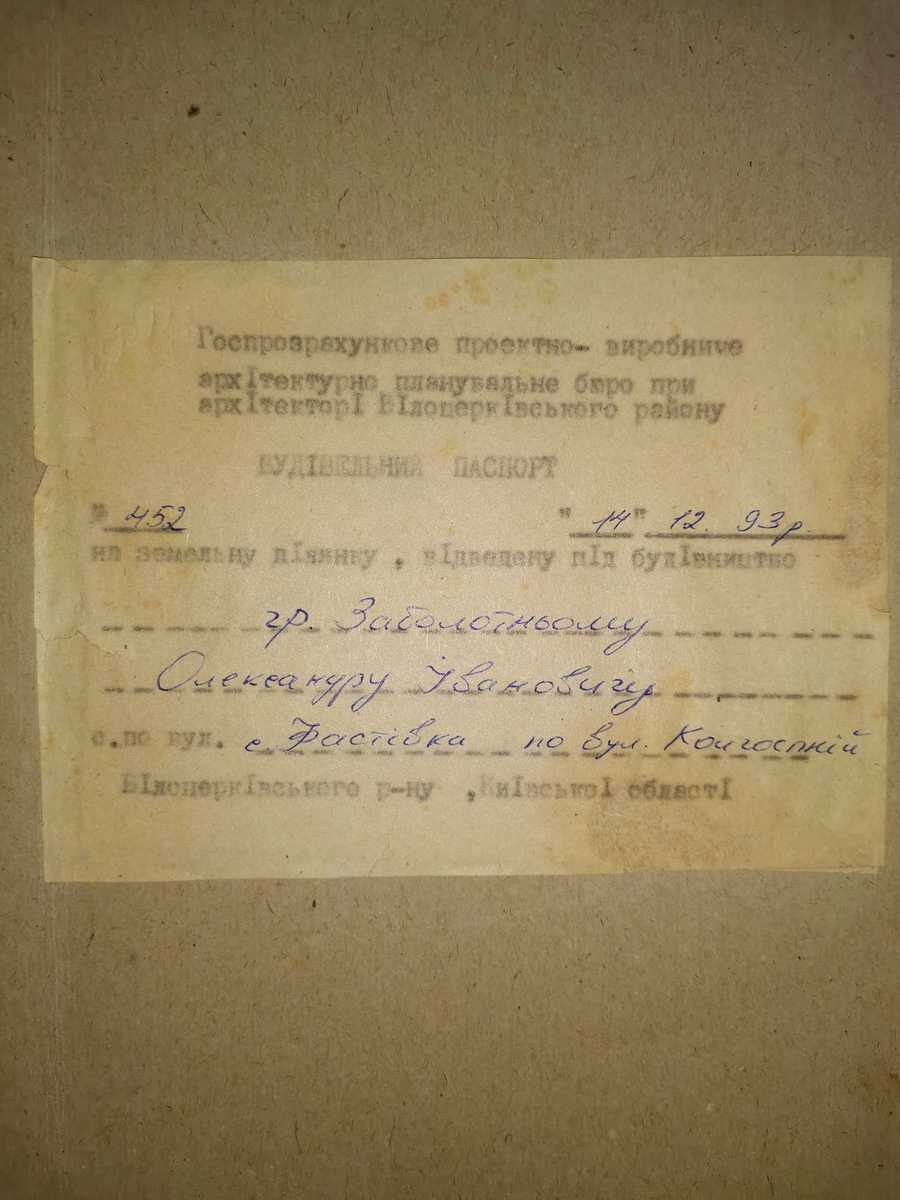 Госпрозрахункове проектно- виробниче
архітектурно планувальне бюро при
архітекторі Білоцерківського району
БУДІВЕЛЬНИЙ ПАСПОРТ
№ 452 "14" 12. 93 р.
на земельну ділянку , відведену під будівництво
гр. Заболотньому
Олександру Івановичу
с.по вул. с. Фастівка по вул. Колгоспній
Білоцерківського р-ну ,Київської області